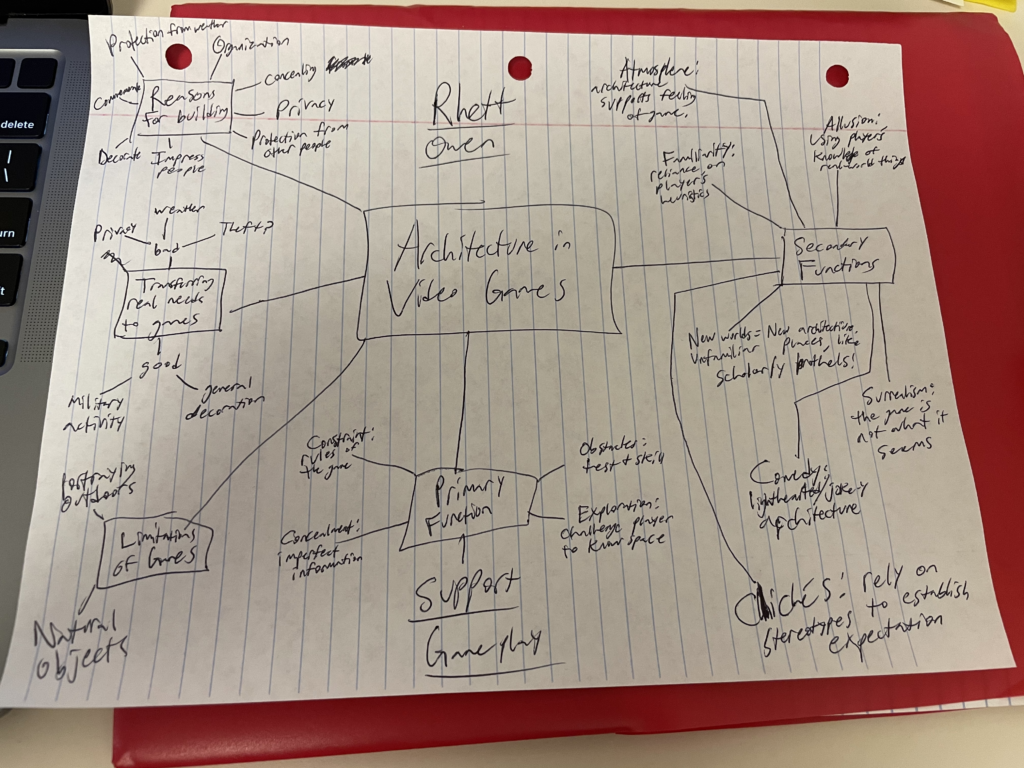 Protection from weather
Organization
concealing
Reasons
for building
Privacy
Protection from
other people
Decorate
Impress
people
Rhett
Owen
Atmosphere:
architecture
supports feeling
of game.
Allusion:
Using players'
knowledge of
real-world things
Familiarity:
reliance on
player's
heuristics
Architecture in
Video Games
Secondary
Functions
weather
Privacy
Theft?
bad
Transferring
real needs
to games
good
Military
activity
general
decoration
New worlds = New architecture.
Unfamiliar places, like
Scholarly brothels!
Surrealism:
the game is
not what it
seems
Comedy:
lighthearted/jokey
architecture
Clichés: rely on
stereotypes to establish
expectation
Constraint:
rules of
the game
Obstacles:
test skill
Primary
Function
Concealment:
imperfect
information
Exploration:
challenge player
to know space
Support
Gameplay
Portraying
Outdoors
Limitations
of Games
Natural
Objects
delete
\
|